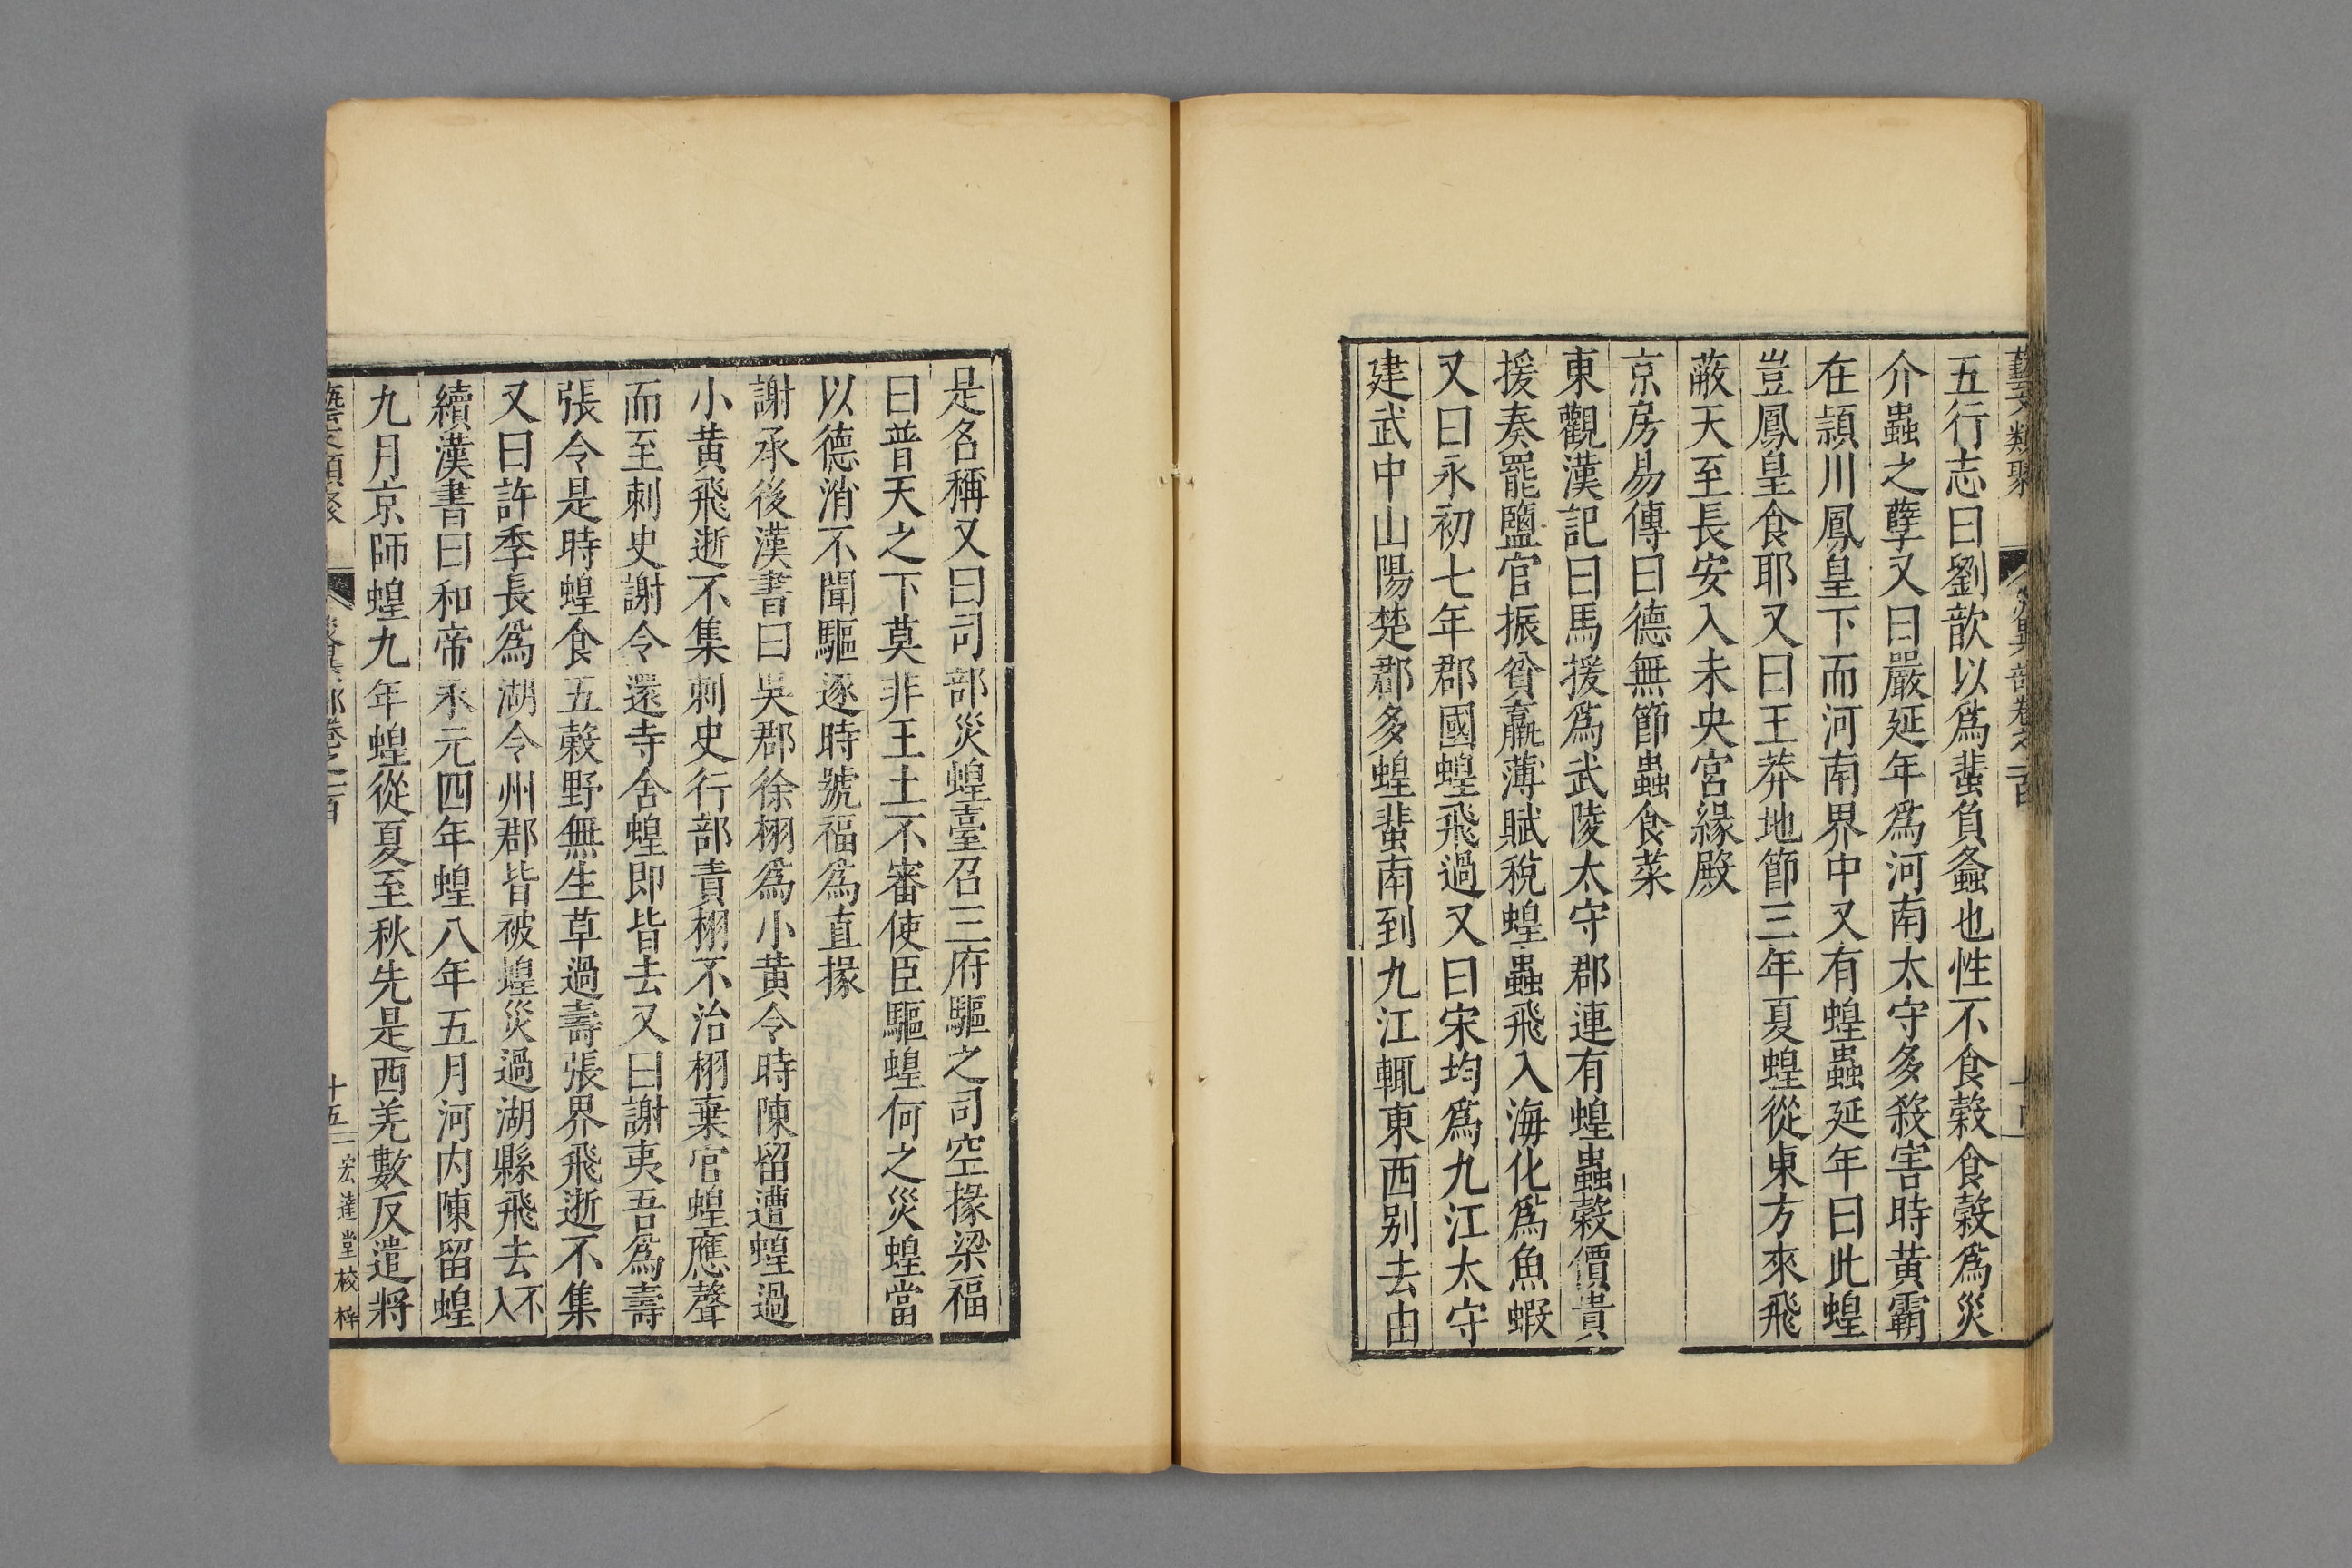 藝文類聚 災異部卷之一百
五行志曰劉歆以爲蜚負螽也性不食穀食穀爲災
介蟲之孽又曰嚴延年爲河南太守多殺害時黃霸
在頴川鳳皇下而河南界中又有蝗蟲延年曰此蝗
豈鳳皇食耶又曰王莽地節三年夏蝗從東方來飛
蔽天至長安入未央宮緣殿
京房易傳曰德無節蟲食菜
東觀漢記曰馬援爲武陵太守郡連有蝗蟲穀價貴
援奏罷鹽官振貧羸薄賦稅蝗蟲飛入海化爲魚蝦
又曰永初七年郡國蝗飛過又曰宋均爲九江太守
建武中山陽楚郡多蝗蜚南到九江輒東西別去由
是名稱又曰司部災蝗臺召三府驅之司空掾梁福
曰普天之下莫非王土不審使臣驅蝗何之災蝗當
以德消不聞驅逐時號福爲直掾
謝承後漢書曰吳郡徐栩爲小黃令時陳留遭蝗過
小黃飛逝不集刺史行部責栩不治栩棄官蝗應聲
而至刺史謝令還寺舍蝗即皆去又曰謝夷吾爲壽
張令是時蝗食五穀野無生草過壽張界飛逝不集
又曰許季長爲湖令州郡皆被蝗災過湖縣飛去不入
續漢書曰和帝永元四年蝗八年五月河內陳留蝗
九月京師蝗九年蝗從夏至秋先是西羌數反遣將
藝文類聚 災異部卷之一百 十五 宏達堂校梓